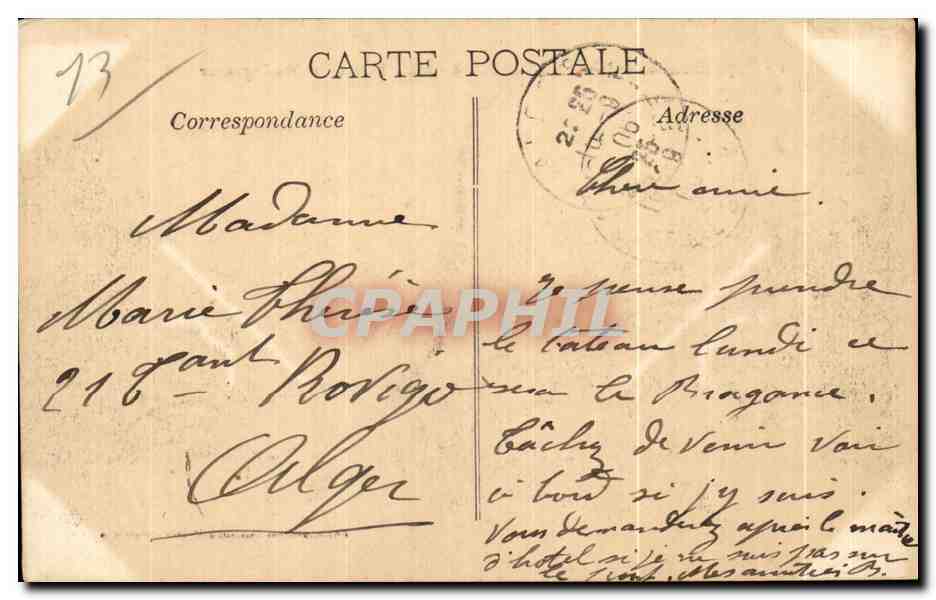 13
CARTE POSTALE
Correspondance
Adresse
Madame
Marie Thérèse
21 Tant Rovigo
Alger
Chère amie.
Je pense prendre
le bateau lundi ce
sera le Bragance.
Tâchez de venir voir
à bord si j'y suis.
Vous demanderez après le maître
d'hotel si je ne suis pas sur
le pont. Mes amitiés
CPAPHIL